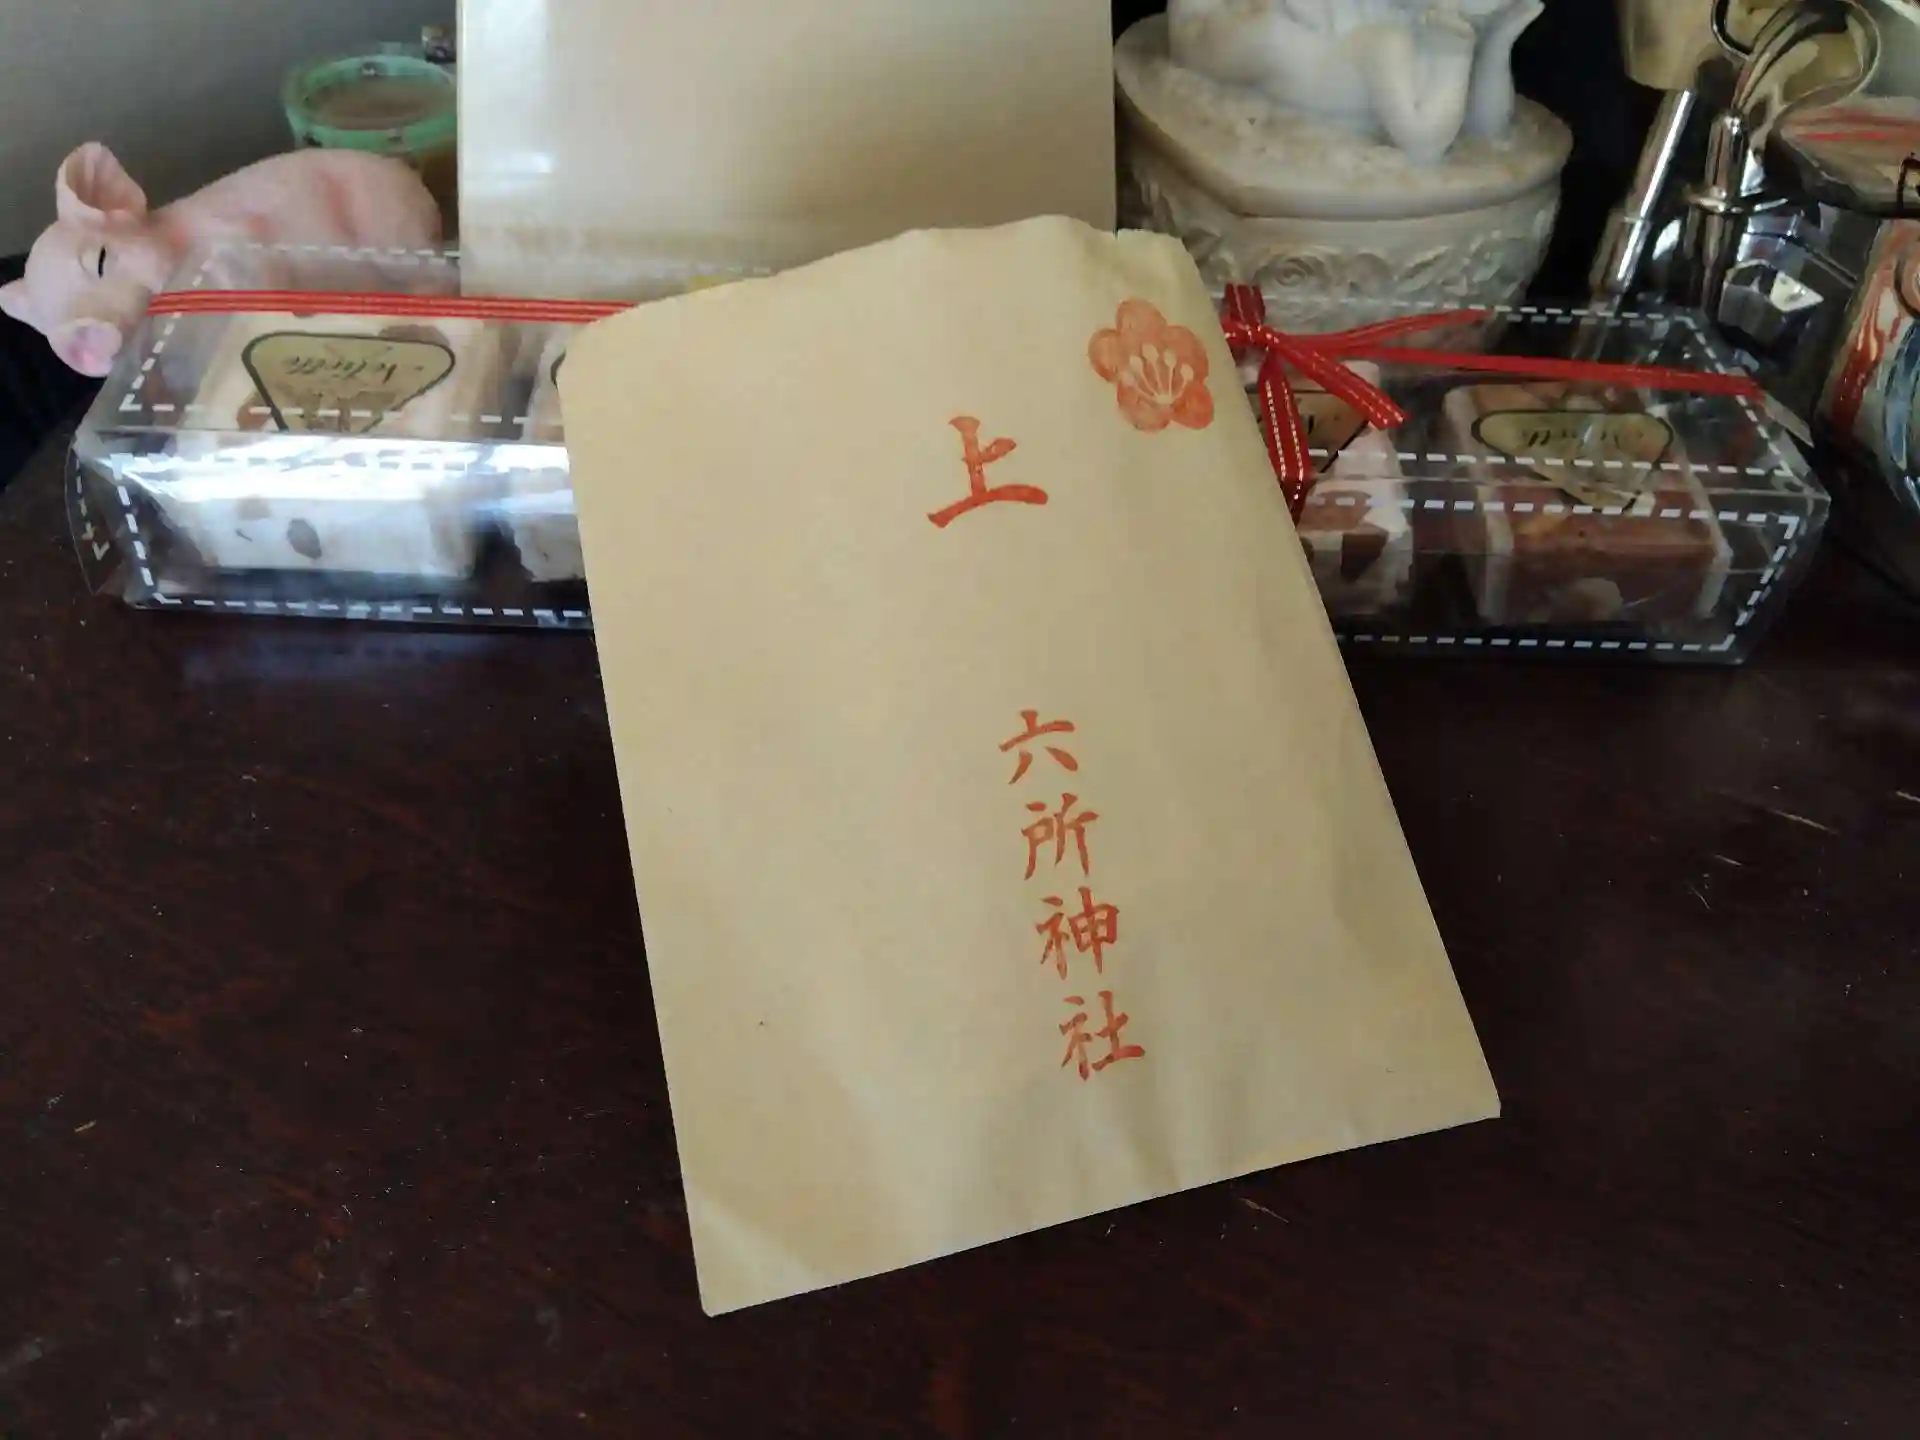 上
六所神社